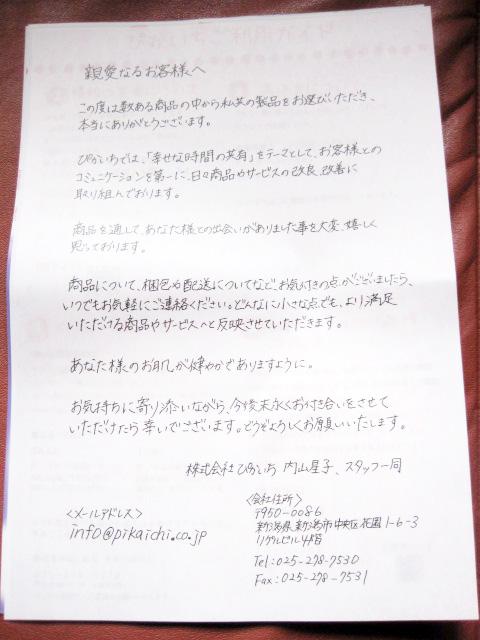 親愛なるお客様へ
この度は数ある商品の中から私共の製品をお選びいただき、
本当にありがとうございます。
ぴかいちでは、「幸せな時間の共有」をテーマとして、お客様との
コミュニケーションを第一に、日々商品やサービスの改良、改善に
取り組んでおります。
商品を通して、あなた様との出会いがありました事を大変、嬉しく
思っております。
商品について、梱包や配送についてなど、お気付きの点がございましたら、
いつでもお気軽にご連絡ください。どんなに小さな点でも、より満足
いただける商品やサービスへと反映させていただきます。
あなた様のお肌が健やかでありますように。
お気持ちに寄り添いながら、今後末永くお付き合いをさせて
いただけたら幸いでございます。どうぞよろしくお願いいたします。
株式会社ぴかいち 内山星子、スタッフ一同
<メールアドレス>
info@pikaichi.co.jp
<会社住所>
〒950-0086
新潟県新潟市中央区花園1-6-3
リゲルビル4階
Tel:025-278-7530
Fax:025-278-7531